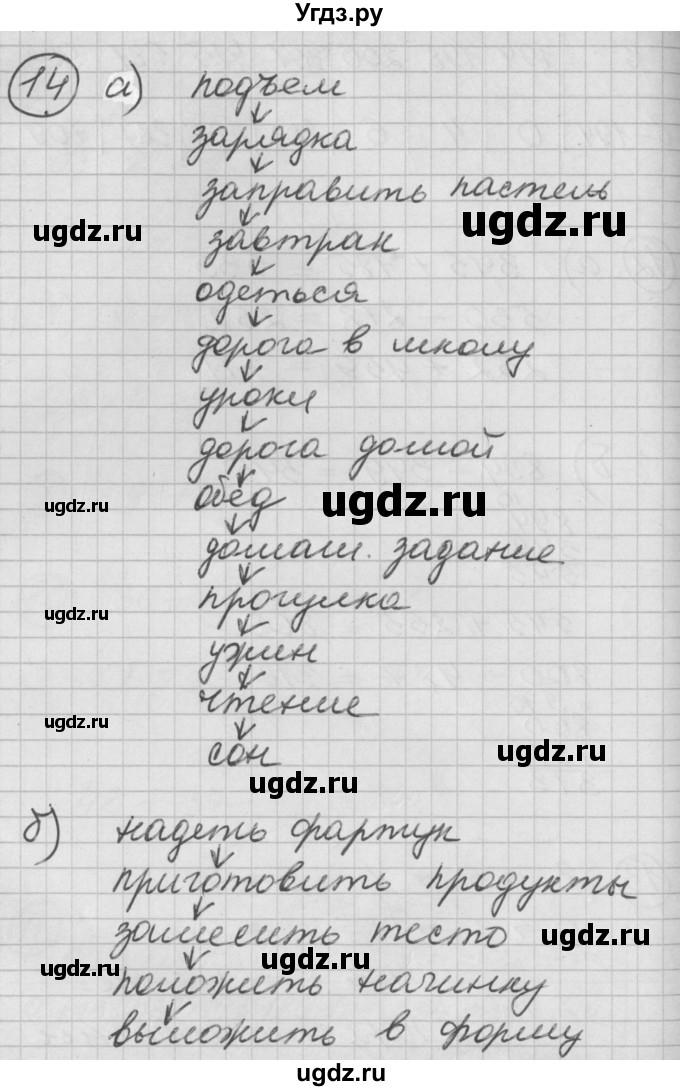 Угдз.ру
14 а) подъем
зарядка
заправить пастель
ugdz.ru
ugdz.ru
завтрак
одеться
дорога в школу
уроки
дорога домой
обед
ugdz.ru
ugdz.ru
домаш. задание
прогулка
ugdz.ru
ужин
чтение
ugdz.ru
сон
ugdz.ru
ugdz.ru
б) надеть фартук
приготовить продукты
замесить тесто
ugdz.ru
ugdz.ru
ugdz.ru
положить начинку
выложить в форму
ugdz.ru